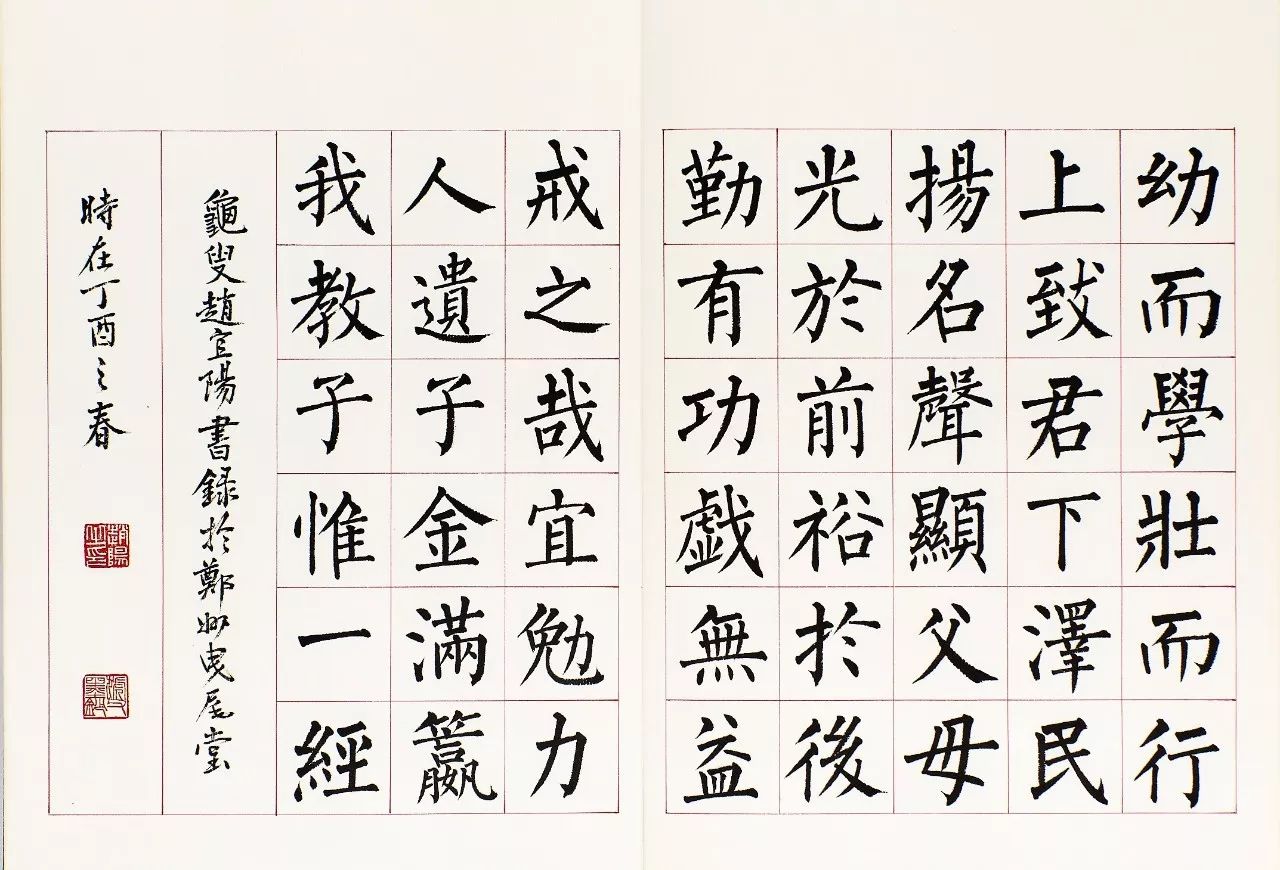 幼而學壯而行
上致君下澤民
揚名聲顯父母
光於前裕於後
勤有功戲無益
戒之哉宜勉力
人遺子金滿籯
我教子惟一經
龜叟趙宜陽書錄於鄭州曳尾堂
時在丁酉之春